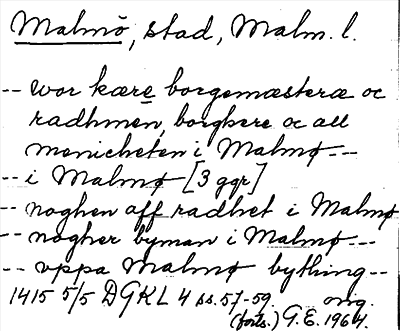 Malmö, stad, Malm. l.
-- wor kære borgemæsteræ oc
radhmen, borghere oc all
menicheten i Malmø --
-- i Malmø [3 ggr]
-- noghen aff radhet i Malmø
-- nogher byman i Malmø --
-- vppa Malmø bything --
1415 5/5 DGKL 4 ss. 57-59. orig.
(forts.) G.E. 1964.